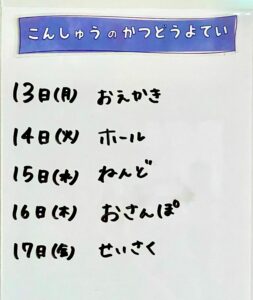 こんしゅうのかつどうよてい
13日(月) おえかき
14日(火) ホール
15日(水) ねんど
16日(木) おさんぽ
17日(金) せいさく